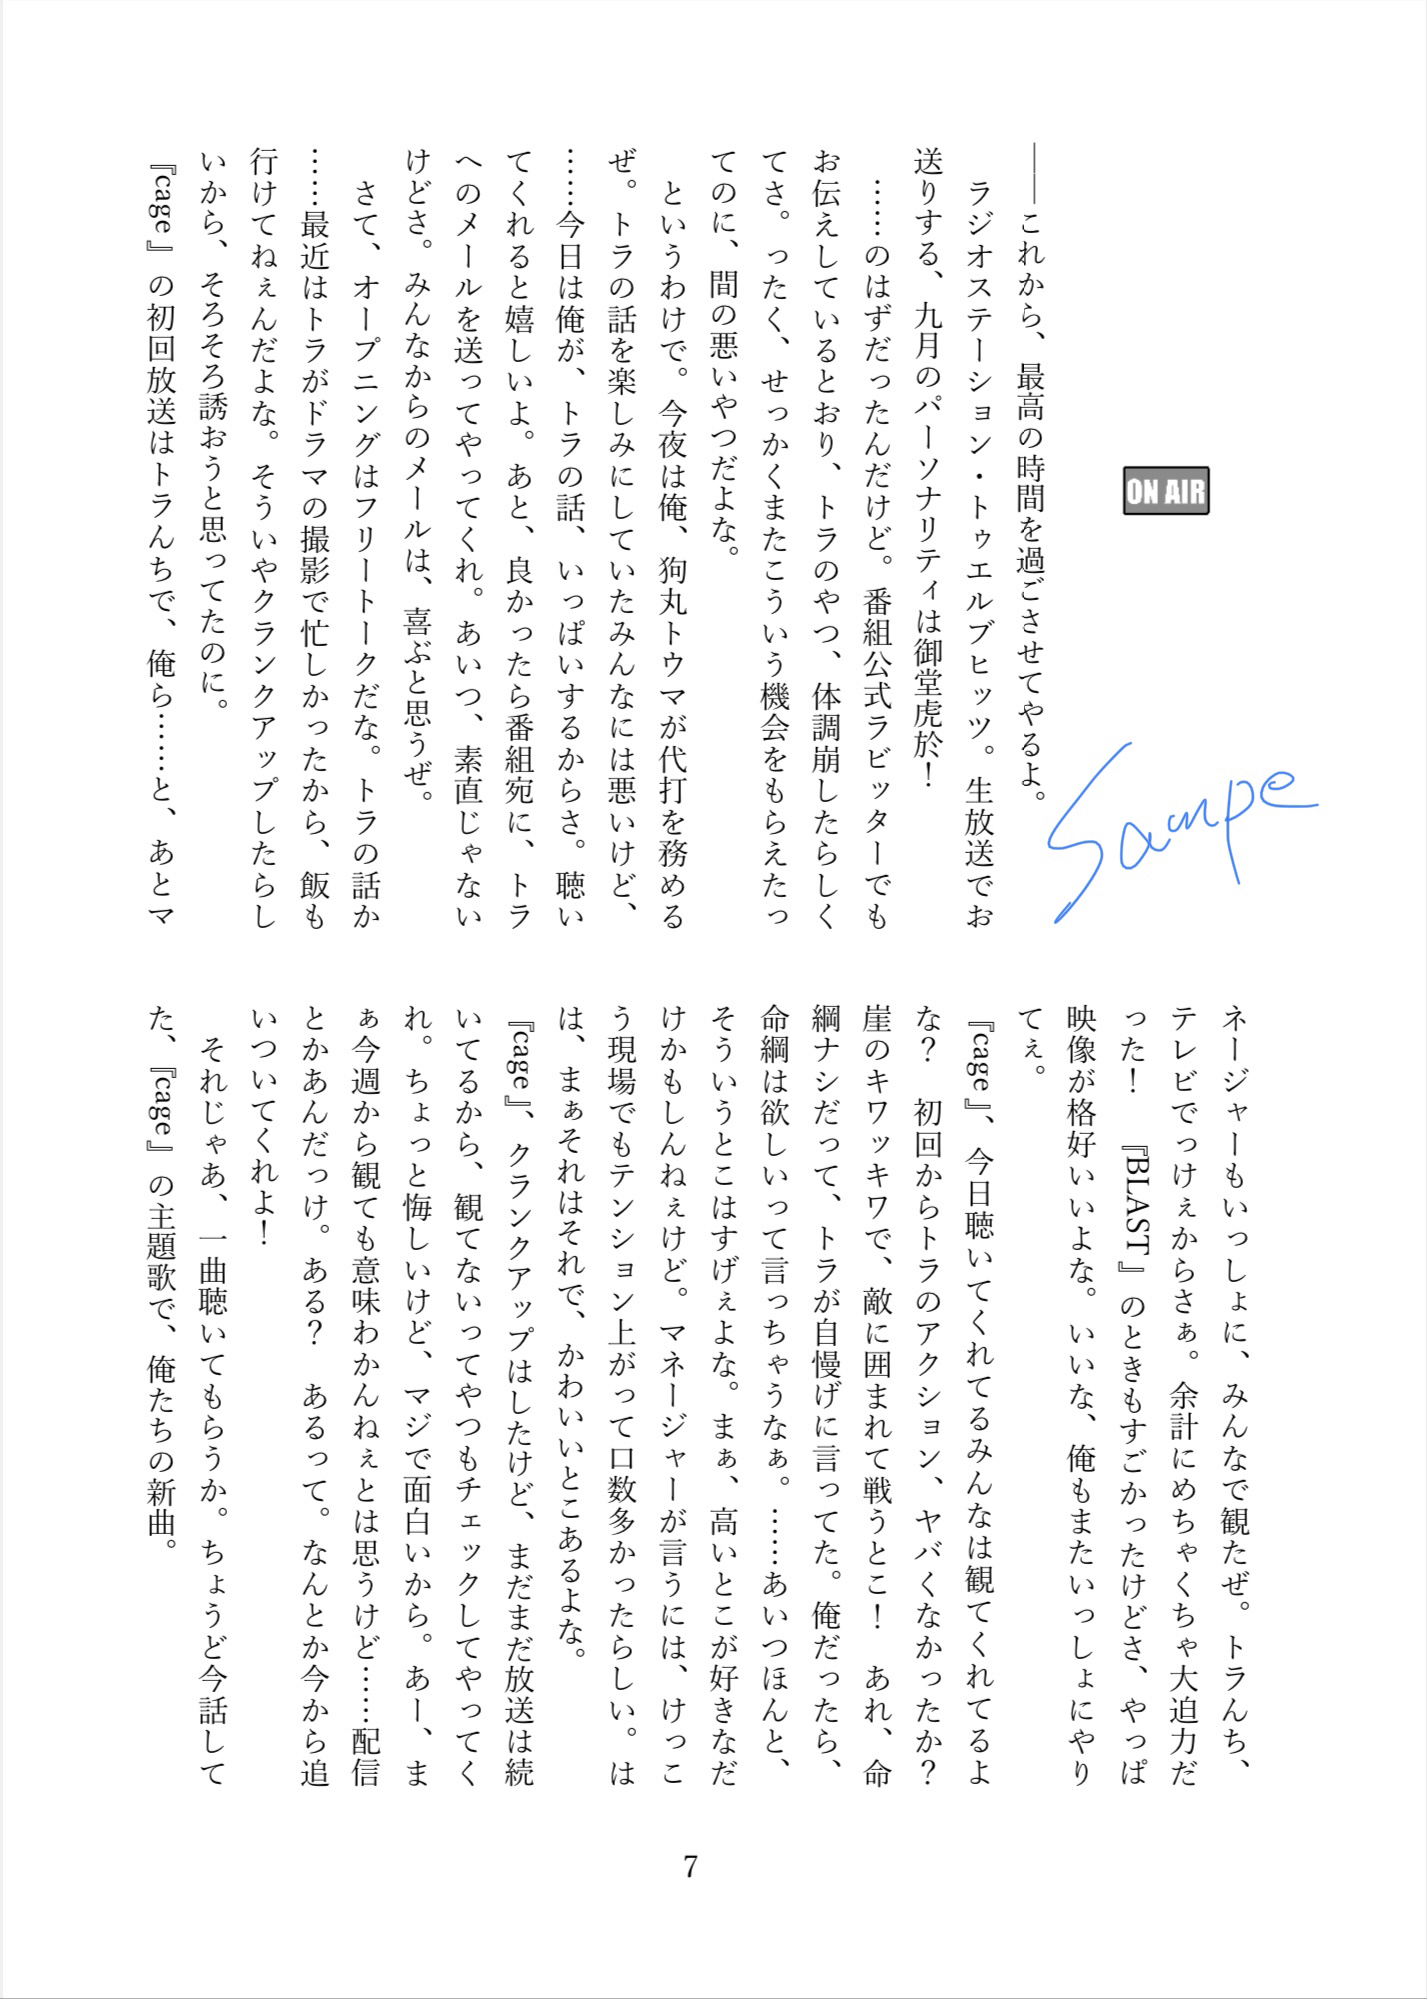 ON AIR
――これから、最高の時間を過ごさせてやるよ。
　ラジオステーション・トゥエルブヒッツ。生放送でお
送りする、九月のパーソナリティは御堂虎於！
　……のはずだったんだけど。番組公式ラビッターでも
お伝えしているとおり、トラのやつ、体調崩したらしく
てさ。ったく、せっかくまたこういう機会をもらえたっ
てのに、間の悪いやつだよな。
　というわけで。今夜は俺、狗丸トウマが代打を務める
ぜ。トラの話を楽しみにしていたみんなには悪いけど、
……今日は俺が、トラの話、いっぱいするからさ。聴い
てくれると嬉しいよ。あと、良かったら番組宛に、トラ
へのメールを送ってやってくれ。あいつ、素直じゃない
けどさ。みんなからのメールは、喜ぶと思うぜ。
　さて、オープニングはフリートークだな。トラの話か
……最近はトラがドラマの撮影で忙しかったから、飯も
行けてねぇんだよな。そういやクランクアップしたらし
いから、そろそろ誘おうと思ってたのに。
『cage』の初回放送はトラんちで、俺ら……と、あとマ
Sampe
ネージャーもいっしょに、みんなで観たぜ。トラんち、
テレビでっけぇからさぁ。余計にめちゃくちゃ大迫力だ
った！　『BLAST』のときもすごかったけどさ、やっぱ
映像が格好いいよな。いいな、俺もまたいっしょにやり
てぇ。
『cage』、今日聴いてくれてるみんなは観てくれてるよ
な？　初回からトラのアクション、ヤバくなかったか？
崖のキワッキワで、敵に囲まれて戦うとこ！　あれ、命
綱ナシだって、トラが自慢げに言ってた。俺だったら、
命綱は欲しいって言っちゃうなぁ。……あいつほんと、
そういうとこはすげぇよな。まぁ、高いとこが好きなだ
けかもしんねぇけど。マネージャーが言うには、けっこ
う現場でもテンション上がって口数多かったらしい。は
は、まぁそれはそれで、かわいいとこあるよな。
『cage』、クランクアップはしたけど、まだまだ放送は続
いてるから、観てないってやつもチェックしてやってく
れ。ちょっと悔しいけど、マジで面白いから。あー、ま
ぁ今週から観ても意味わかんねぇとは思うけど……配信
とかあんだっけ。ある？　あるって。なんとか今から追
いついてくれよ！
　それじゃあ、一曲聴いてもらうか。ちょうど今話して
た、『cage』の主題歌で、俺たちの新曲。
7